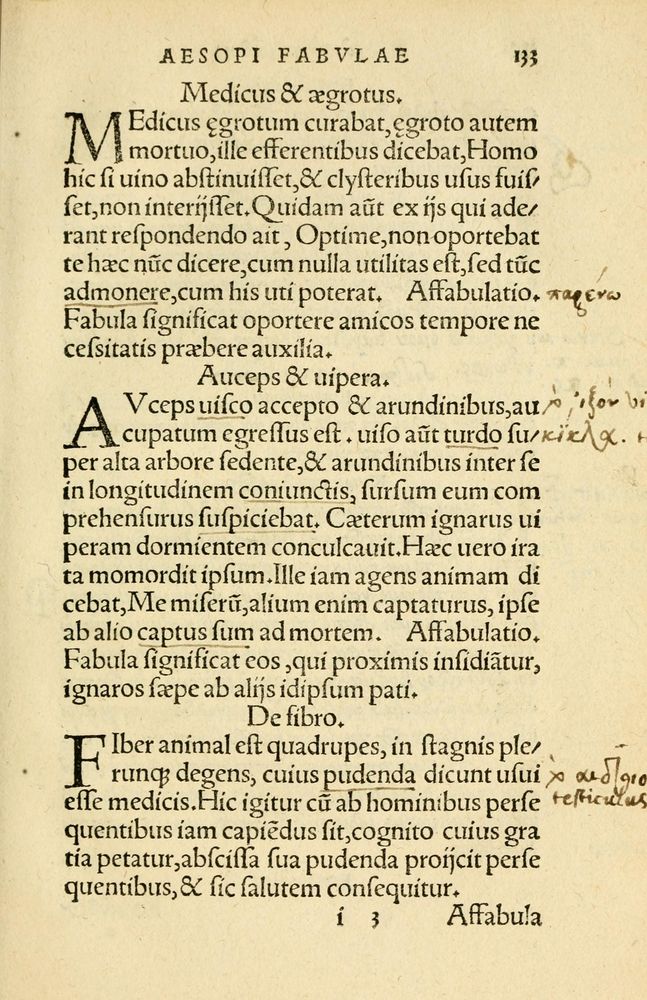 AESOPI FABVLAE 133
Medicus & ægrotus.
MEdicus ęgrotum curabat, ęgroto autem
mortuo, ille efferentibus dicebat, Homo
hic si uino abstinuisset, & clysteribus usus fuis/
set, non interijsset. Quidam aũt ex ijs qui ade/
rant respondendo ait, Optime, non oportebat
te hæc nũc dicere, cum nulla utilitas est, sed tũc
admonere, cum his uti poterat. Affabulatio.
Fabula significat oportere amicos tempore ne
cessitatis præbere auxilia.
Auceps & uipera.
AVceps uisco accepto & arundinibus, au/
cupatum egressus est. uiso aũt turdo su/
per alta arbore sedente, & arundinibus inter se
in longitudinem coniunctis, sursum eum com
prehensurus suspiciebat. Cæterum ignarus ui
peram dormientem conculcauit. Hæc uero ira
ta momordit ipsum. Ille iam agens animam di
cebat, Me miserũ, alium enim captaturus, ipse
ab alio captus sum ad mortem. Affabulatio.
Fabula significat eos, qui proximis insidiãtur,
ignaros sæpe ab alijs idipsum pati.
De fibro.
FIber animal est quadrupes, in stagnis ple/
runq; degens, cuius pudenda dicunt usui
testiculus
esse medicis. Hic igitur cũ ab hominibus perse
quentibus iam capiẽdus sit, cognito cuius gra
tia petatur, abscissa sua pudenda proijcit perse
quentibus, & sic salutem consequitur.
i 3 Affabula